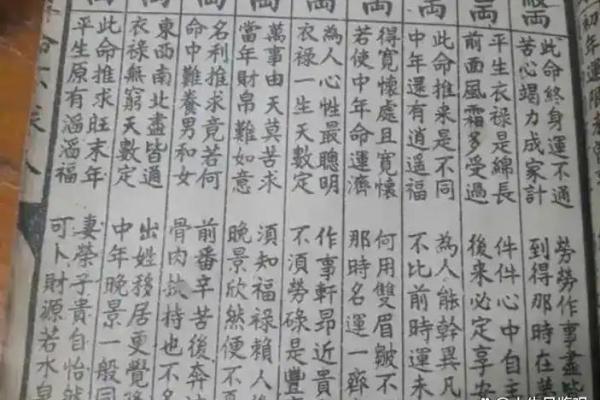 初年運限
此命終身運不通 勞勞作事盡皆
苦心竭力成家計 到得那時在
平生衣祿是綿長 件件心中自主
前面風霜多受過 後來必定享安
此命推來是不同 為人能幹異凡
中年還有逍遙福 不比前時運未
得寬懷處且寬懷 何用雙眉皺不
若使中年命運濟 那時名運一齊
為人心性最聰明 作事軒昂近貴
衣祿一生天數定 不須勞碌是豐
萬事由天莫苦求 須知福祿賴人
當年財帛難如意 晚景欣然便不
名利推求竟若何 前番辛苦後奔
命中難養男和女 骨肉扶持也不
東西南北盡皆通 出姓移居更覺
衣祿無窮天數定 中年晚景一般同
此命推求旺末年 妻榮子貴自怡然
平生原有滔滔福 可卜財源若水泉